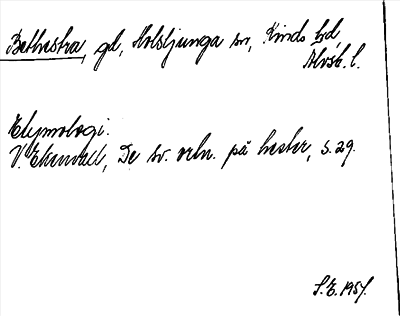 Bethestra, gd, Holsljunga sn, Kinds hd
Älvsb. l.
Etymologi.
V. Ekenvall, De sv. ortn. på hester, s. 29.
S.E. 1957.